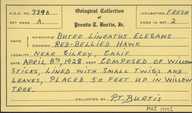 Oological Collection
of
Prentis T. Burtis, Jr.
A.O.U. No. 339b
Set Mark A.
Incubation FRESH
No. in Set 2
Name BUTEO LINEATUS ELEGANS
RED-BELLIED HAWK
Locality NEAR GILROY, CALIF.
Date APRIL 8TH, 1928. Nest COMPOSED OF WILLOW
STICKS, LINED WITH SMALL TWIGS AND
LEAVES, PLACED 50 FEET UP IN WILLOW
TREE.
P.T. BURTIS